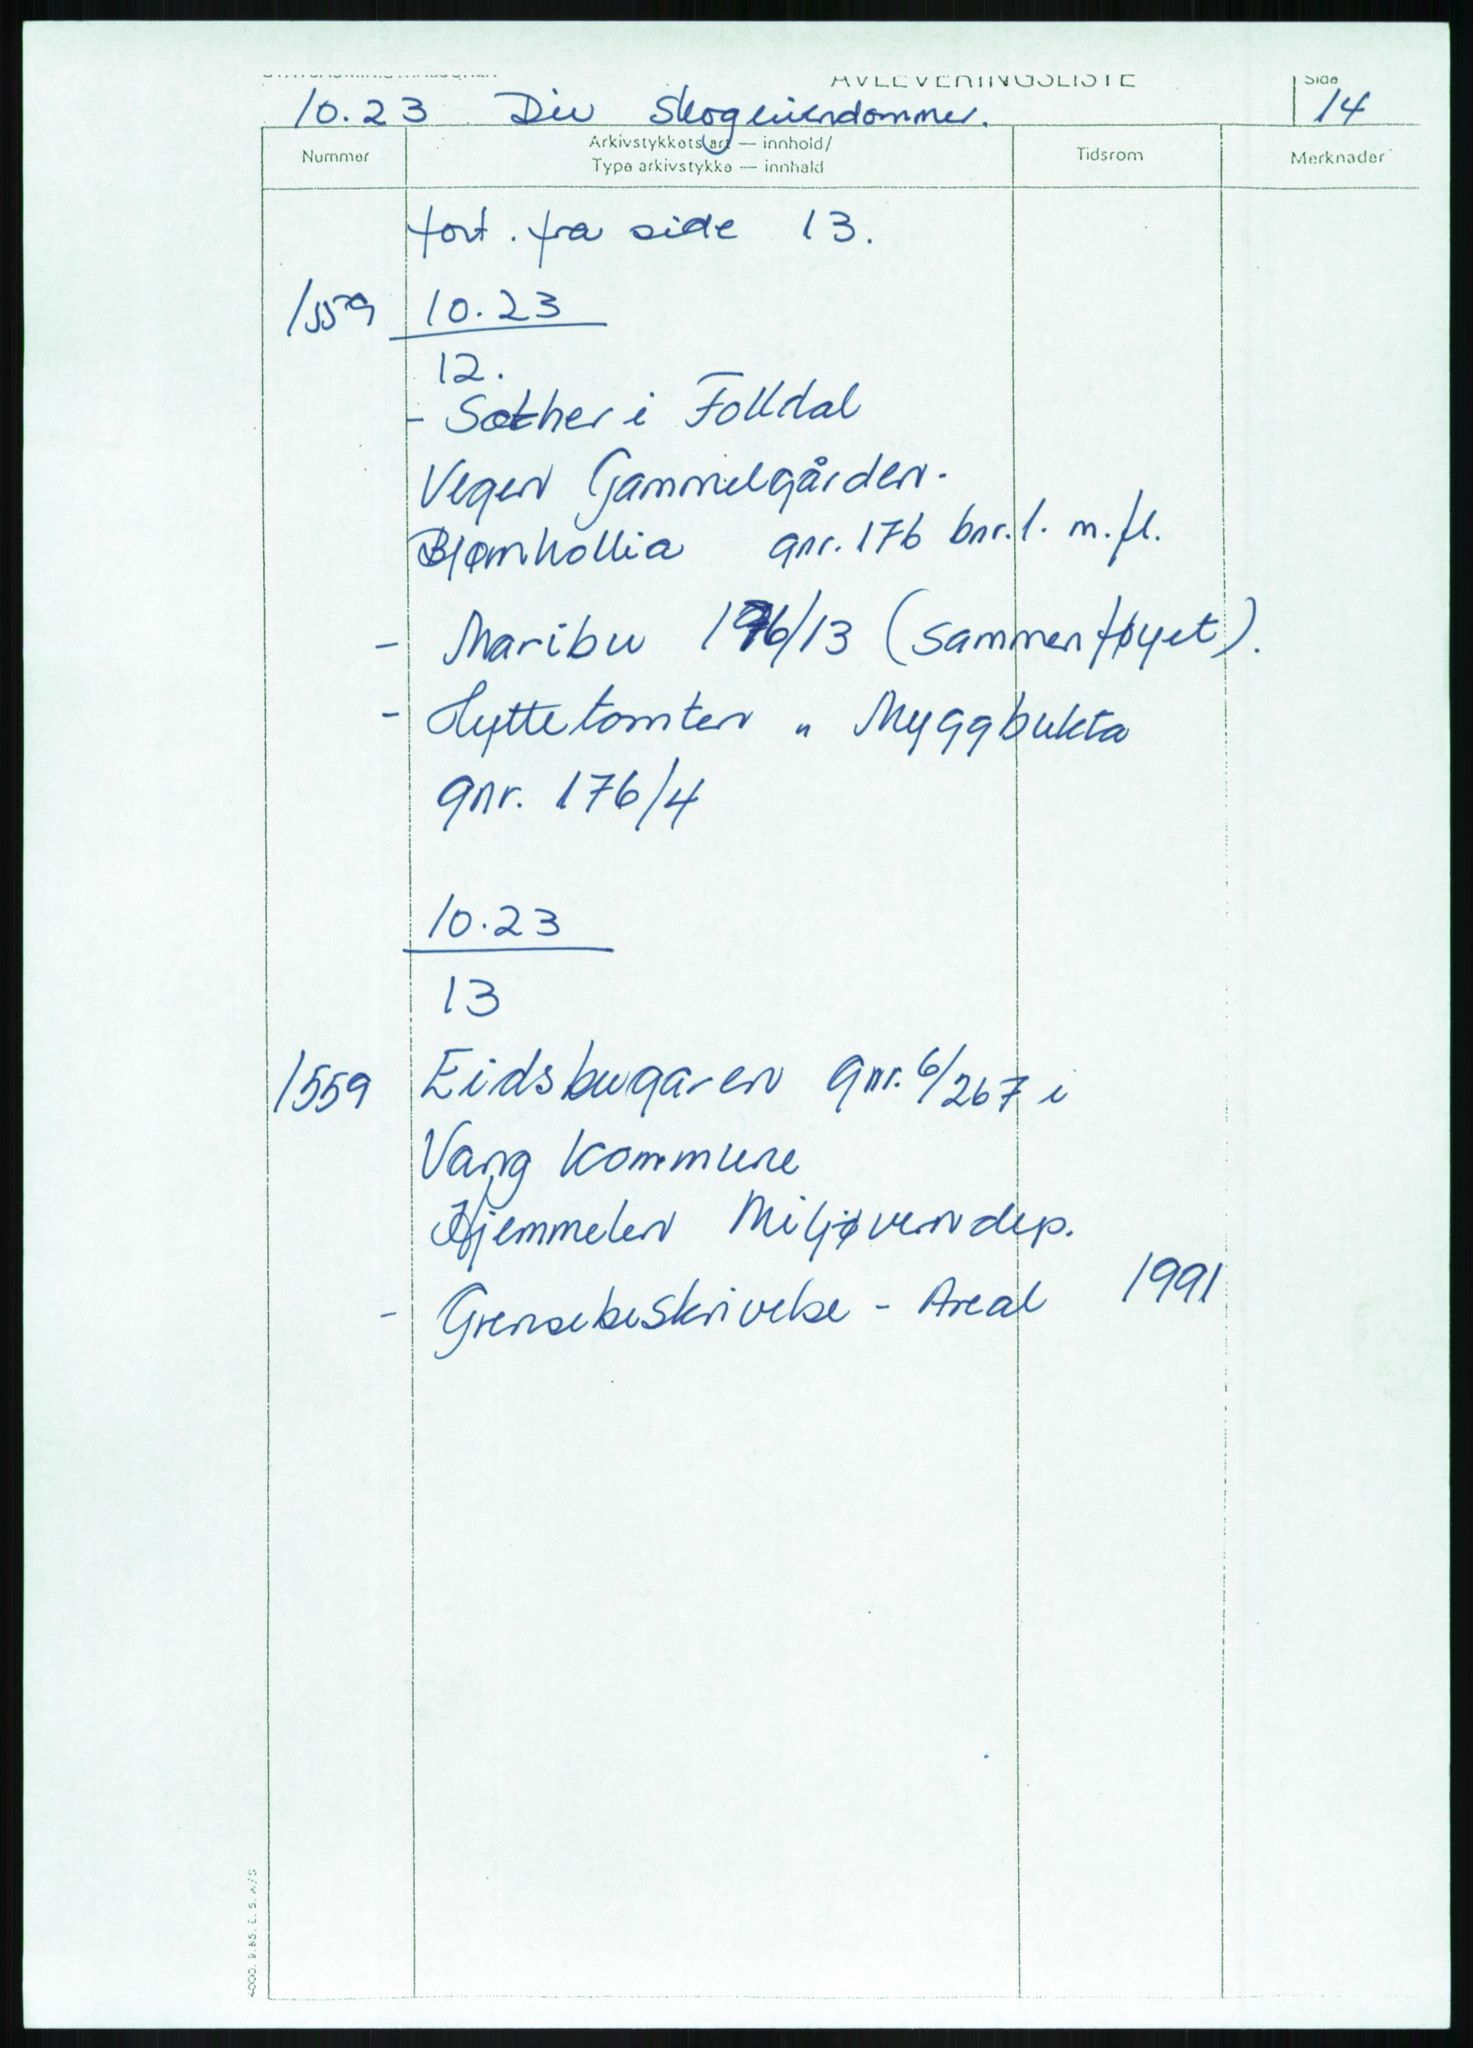 AVLEVERINGSLISTE
Side
10.23 Div Skogeiendommer. 14
Nummer
Arkivstykkets art — innhold/
Type arkivstykke — innhald
Tidsrom
Merknader
fort. fra side 13.
1559 10.23
12.
- Sæther i Folldal
Vegen Gammelgården.
Bjørnhollia gnr. 176 bnr. 1. m. fl.
- Maribu 176/13 (sammenføyet).
- Hyttetomten " Myggbukta
gnr. 176/4
10.23
13
1559 Eidsbugaren gnr. 6/267 i
Vang kommune
Hjemmelen Miljøverndep.
- Grensebeskrivelse - Areal 1991
4000. 9.85. E. S. A/S